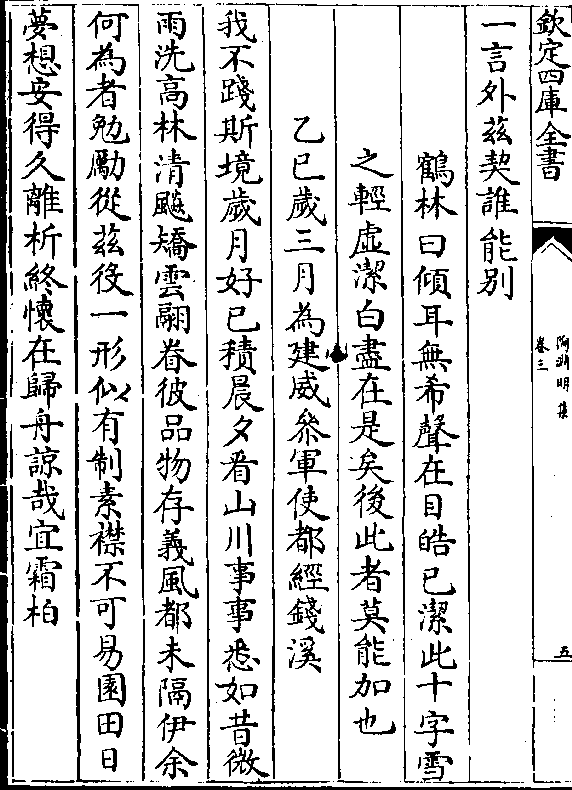 欽定四庫全書
陶淵明集
卷三
五
一言外兹契誰能别
鶴林曰傾耳無希聲在目皓已潔此十字雪
之輕虛潔白盡在是矣後此者莫能加也
乙巳歲三月為建威叅軍使都經錢溪
我不踐斯境歲月好已積晨夕看山川事事悉如昔微
雨洗高林清飈矯雲翮眷彼品物存義風都未隔伊余
何為者勉勵從兹役一形似有制素襟不可易園田日
夢想安得久離析終懷在歸舟諒哉宜霜柏